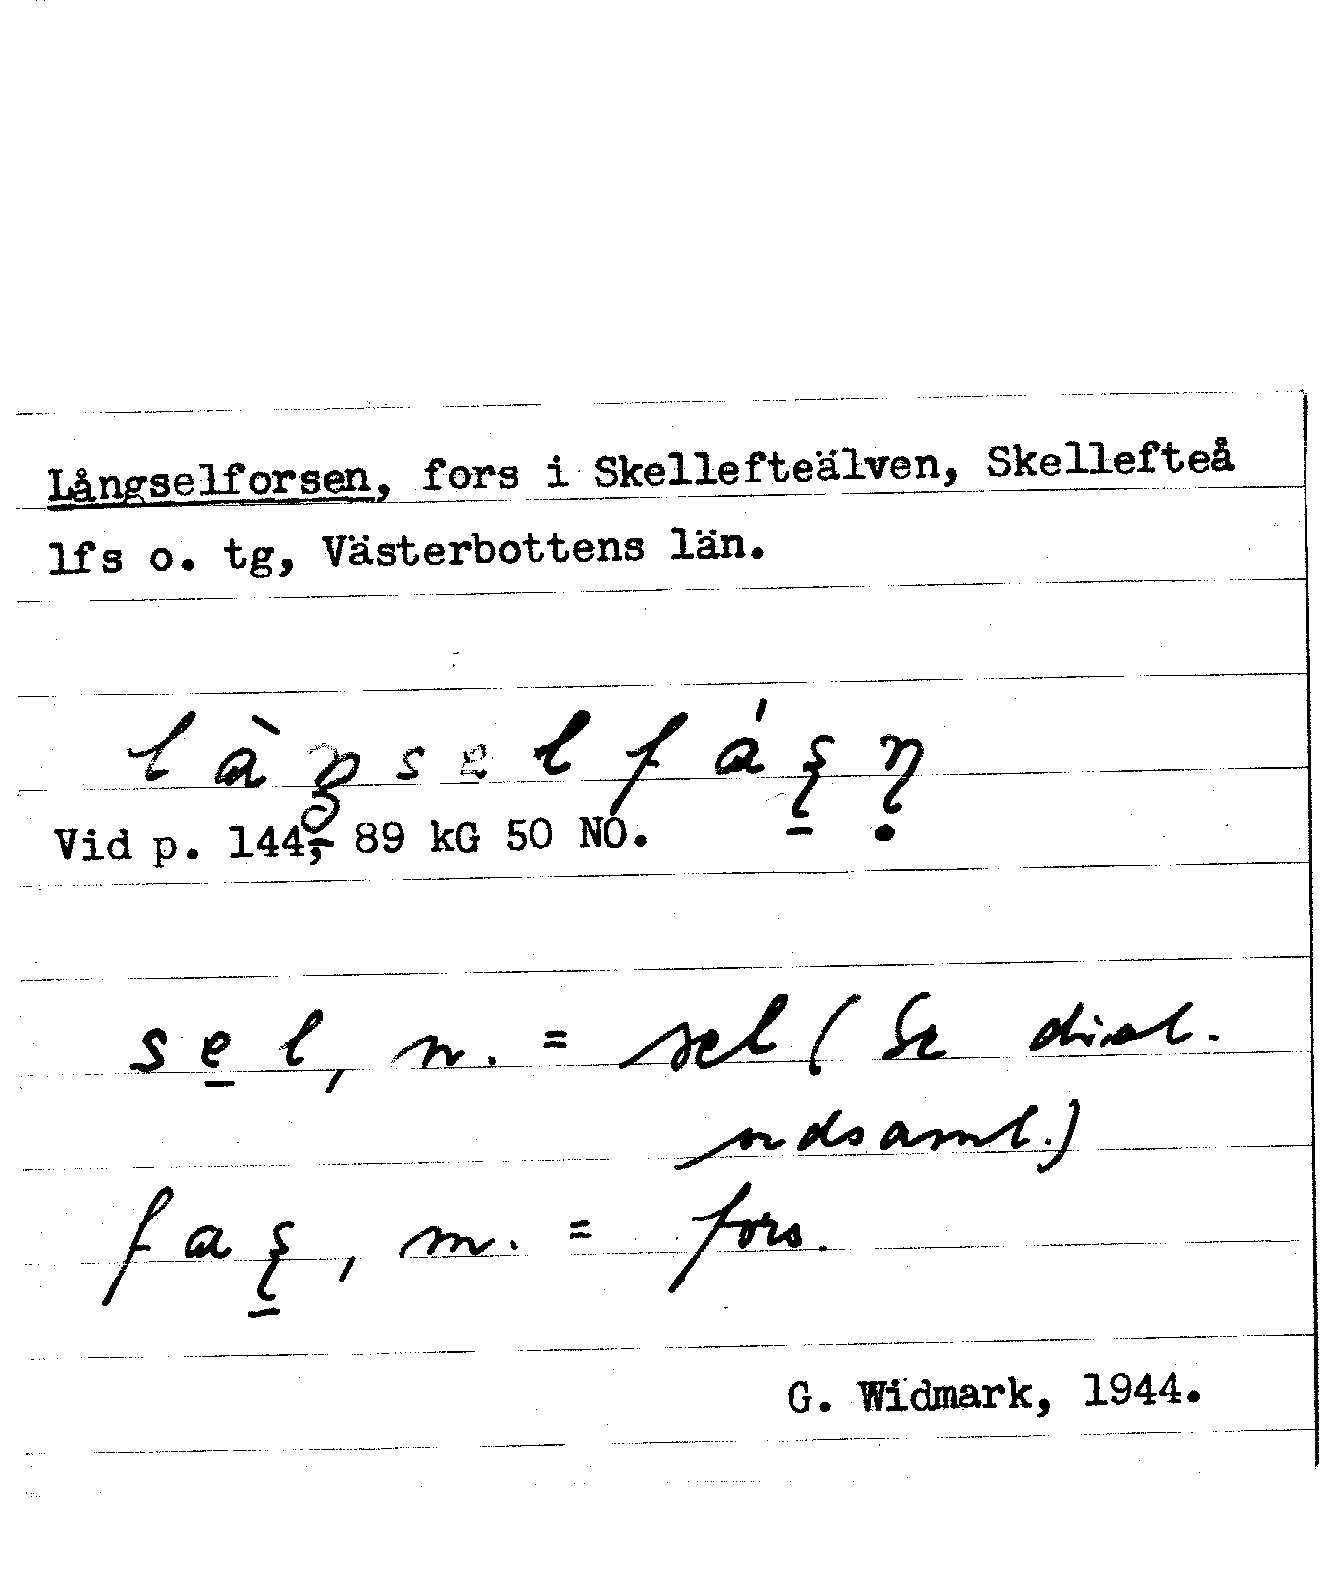 Långselforsen, fors i Skellefteälven, Skellefteå
lfs o. tg, Västerbottens län.
Vid p. 144, 89 kG 50 NO.
sel, n. = sel (Se dial.
ordsaml.)
fas̨, m. = fors.
G. Widmark, 1944.